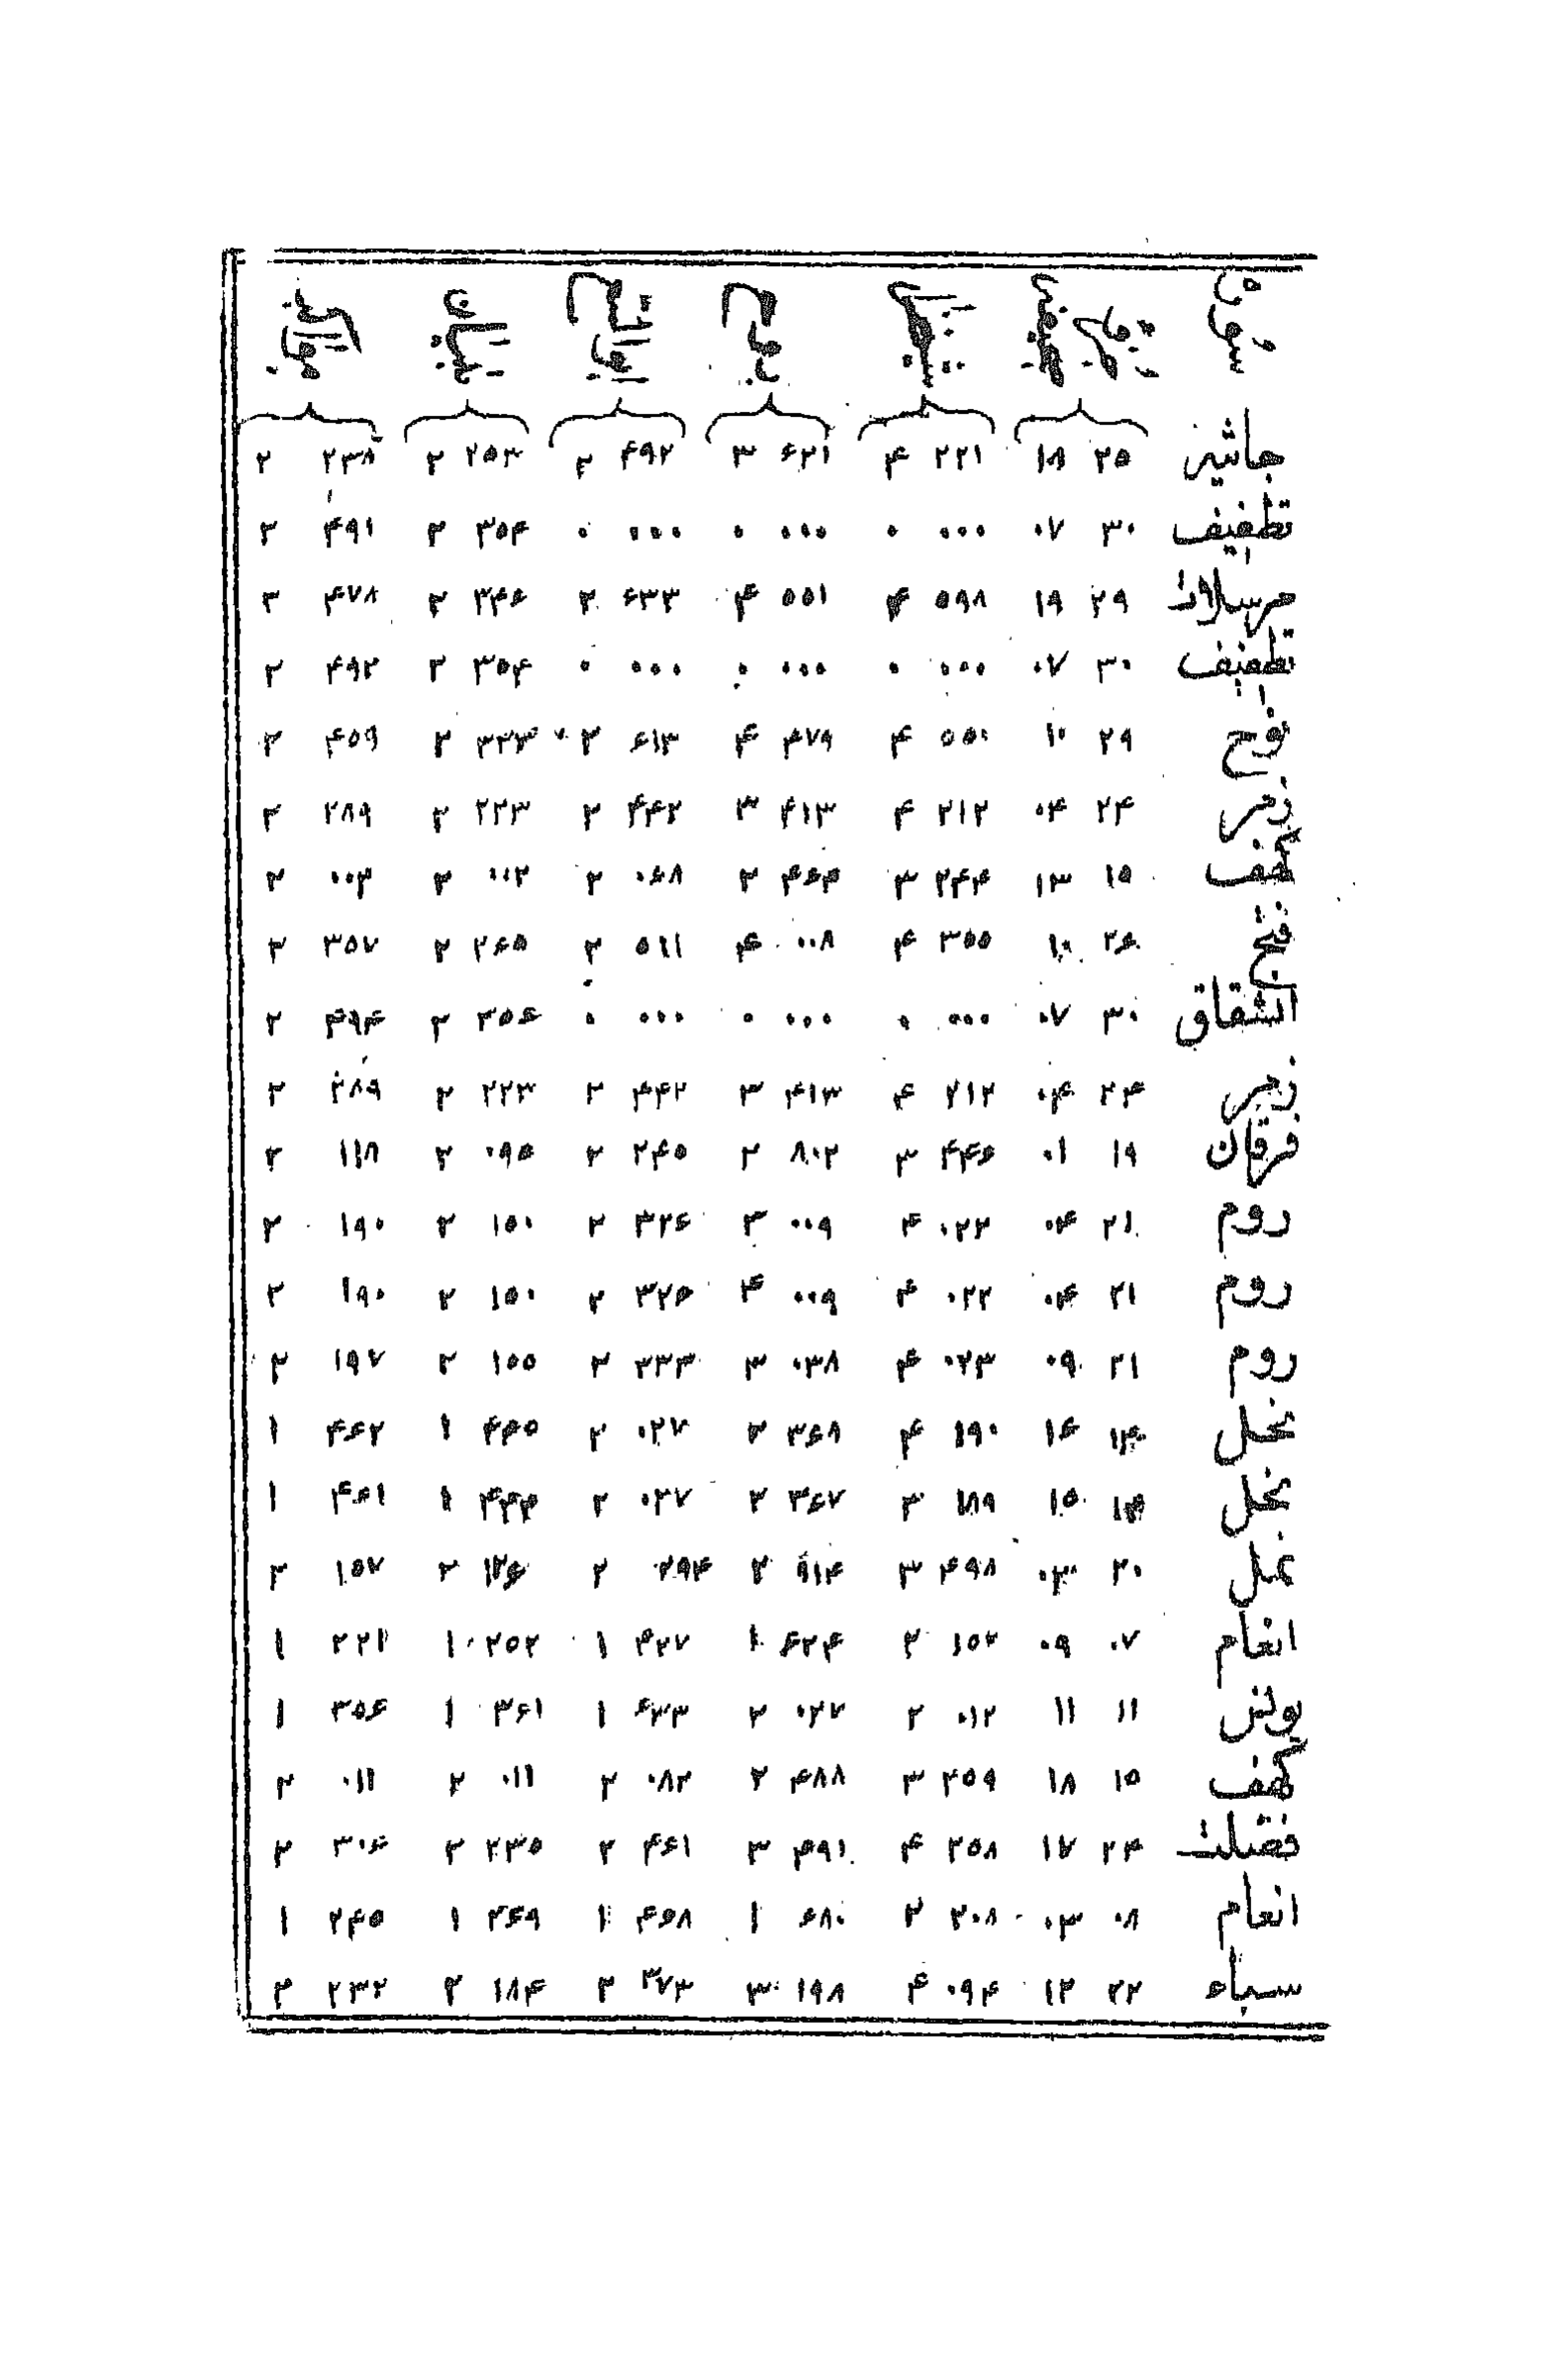 جاثیه ۲۵ ۱۸ ۲۲۱ ۴ ۶۲۱ ۳ ۴۹۲ ۲ ۲۵۳ ۲ ۲۳۸ ۲
تطفیف ۳۰ ۰۷ ۰۰۰ ۰ ۰۰۰ ۰ ۰۰۰ ۰ ۳۵۴ ۲ ۴۹۱ ۲
مرسلات ۲۹ ۱۹ ۵۹۸ ۴ ۵۵۱ ۴ ۶۳۳ ۲ ۳۴۶ ۲ ۴۷۸ ۲
تطفیف ۳۰ ۰۷ ۰۰۰ ۰ ۰۰۰ ۰ ۰۰۰ ۰ ۳۵۴ ۲ ۴۹۲ ۲
نوح ۲۹ ۱۰ ۵۵۰ ۴ ۴۷۹ ۴ ۶۱۳ ۲ ۳۳۳ ۲ ۴۵۹ ۲
زمر ۲۴ ۰۴ ۲۱۲ ۴ ۴۱۳ ۳ ۴۴۲ ۲ ۲۲۳ ۲ ۲۸۹ ۲
کهف ۱۵ ۱۳ ۲۴۴ ۳ ۴۶۴ ۲ ۰۶۸ ۲ ۰۰۲ ۲ ۰۰۳ ۲
فتح ۲۶ ۱۰ ۳۵۵ ۴ ۰۰۸ ۴ ۵۱۱ ۲ ۲۶۵ ۲ ۳۵۷ ۲
انشقاق ۳۰ ۰۷ ۰۰۰ ۰ ۰۰۰ ۰ ۰۰۰ ۰ ۳۵۶ ۲ ۴۹۴ ۲
زمر ۲۴ ۰۴ ۲۱۲ ۴ ۴۱۳ ۳ ۴۴۲ ۲ ۲۲۳ ۲ ۲۸۹ ۲
فرقان ۱۹ ۰۱ ۴۴۶ ۳ ۸۰۲ ۲ ۲۴۵ ۲ ۰۹۵ ۲ ۱۱۸ ۲
روم ۲۱ ۰۴ ۰۲۲ ۴ ۰۰۹ ۳ ۳۲۶ ۲ ۱۵۰ ۲ ۱۹۰ ۲
روم ۲۱ ۰۴ ۰۲۲ ۴ ۰۰۹ ۴ ۳۲۶ ۲ ۱۵۰ ۲ ۱۹۰ ۲
روم ۲۱ ۰۹ ۰۲۳ ۴ ۰۳۸ ۳ ۳۳۳ ۲ ۱۵۵ ۲ ۱۹۷ ۲
نحل ۱۴ ۱۶ ۱۹۰ ۴ ۳۶۸ ۲ ۰۲۷ ۲ ۴۴۵ ۱ ۴۶۲ ۱
نحل ۱۴ ۱۵ ۱۸۹ ۳ ۳۶۷ ۲ ۰۲۷ ۲ ۴۴۴ ۱ ۴۶۱ ۱
نمل ۲۰ ۰۳ ۴۹۸ ۳ ۹۱۴ ۲ ۲۹۴ ۲ ۱۲۶ ۲ ۱۵۷ ۲
انعام ۰۷ ۰۹ ۱۵۲ ۲ ۶۲۴ ۱ ۴۲۷ ۱ ۲۵۲ ۱ ۲۲۱ ۱
یونس ۱۱ ۱۱ ۰۱۲ ۲ ۰۲۷ ۲ ۶۳۳ ۱ ۳۶۱ ۱ ۳۵۶ ۱
کهف ۱۵ ۱۸ ۲۵۹ ۳ ۴۸۸ ۲ ۰۸۲ ۲ ۰۱۱ ۲ ۰۱۱ ۲
فصلت ۲۴ ۱۷ ۲۵۸ ۴ ۴۹۱ ۳ ۴۶۱ ۲ ۲۳۵ ۲ ۳۰۶ ۲
انعام ۰۸ ۰۳ ۲۰۸ ۲ ۶۸۰ ۱ ۴۵۸ ۱ ۲۶۹ ۱ ۲۴۵ ۱
سباء ۲۲ ۱۲ ۰۹۴ ۴ ۱۹۸ ۳ ۳۷۳ ۲ ۱۸۴ ۲ ۲۳۲ ۲